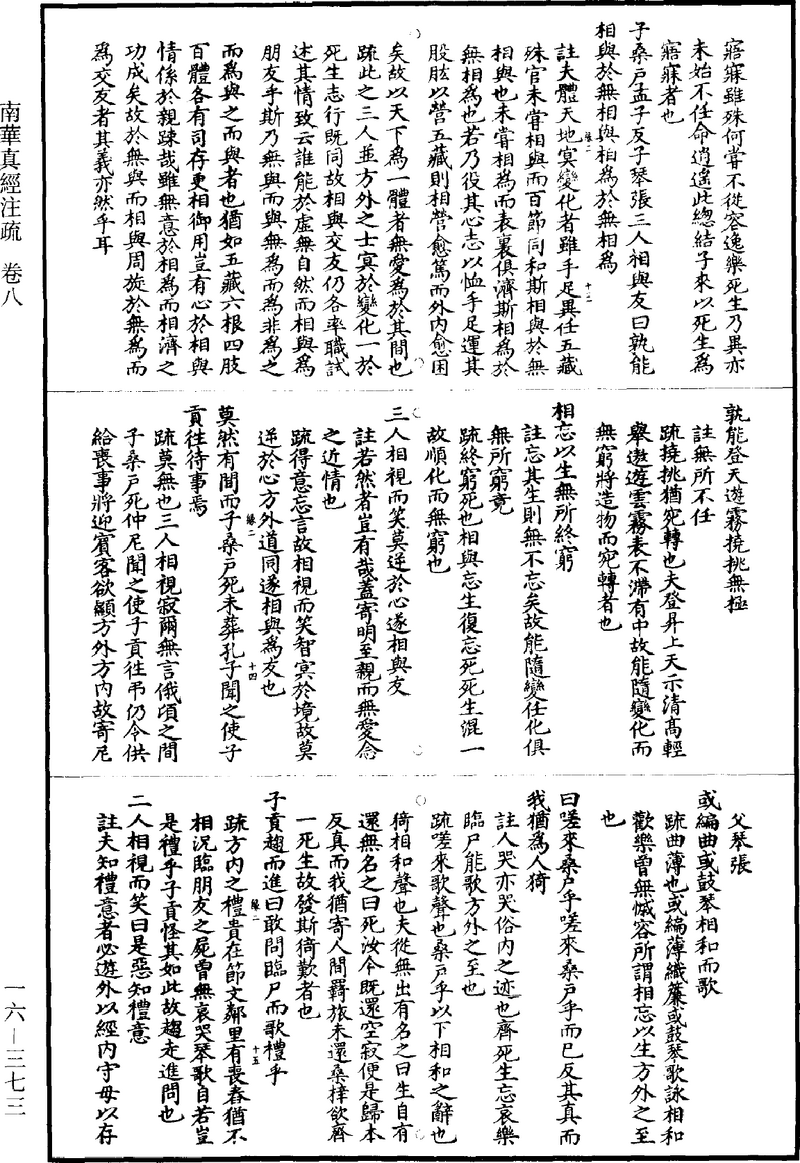 寤寐雖殊何嘗不從容逸樂死生乃異亦
未始不任命逍遙此總結子來以死生爲
寤寐者也
子桑戶孟子反子琴張三人相與友曰孰能
相與於無相與相爲於無相爲
註夫體天地冥變化者雖手足異任五藏
殊官未嘗相與而百節同和斯相與於無
相與也未嘗相爲而表裏俱濟斯相爲於
無相爲也若乃役其心志以恤手足運其
股肱以營五藏則相營愈篤而外內愈困
矣故以天下爲一體者無愛爲於其間也
疏此之三人並方外之士冥於變化一於
死生志行既同故相與交友仍各率職試
述其情致云誰能於虛無自然而相與爲
朋友乎斯乃無與而與無爲而爲非爲之
而爲與之而與者也猶如五藏六根四肢
百體各有司存更相御用豈有心於相與
情係於親疎哉雖無意於相爲而相濟之
功成矣故於無與而相與周旋於無爲而
爲交友者其義亦然乎耳
孰能登天遊霧撓挑無極
註無所不任
疏撓挑猶宛轉也夫登昇上天示清高輕
舉遨遊雲霧表不滯有中故能隨變化而
無窮將造物而宛轉者也
相忘以生無所終窮
註忘其生則無不忘矣故能隨變任化俱
無所窮竟
疏終窮死也相與忘生復忘死死生混一
故順化而無窮也
三人相視而笑莫逆於心遂相與友
註若然者豈有哉蓋寄明至親而無愛念
之近情也
疏得意忘言故相視而笑智冥於境故莫
逆於心方外道同遂相與爲友也
莫然有間而子桑戶死未葬孔子聞之使子
貢往待事焉
疏莫無也三人相視寂爾無言俄頃之間
子桑戶死仲尼聞之使子貢往弔仍令供
給喪事將迎賓客欲顯方外方內故寄尼
父琴張
或編曲或鼓琴相和而歌
疏曲薄也或編薄織簾或鼓琴歌詠相和
歡樂曾無慼容所謂相忘以生方外之至
也
曰嗟來桑戶乎嗟來桑戶乎而已反其真而
我猶爲人猗
註人哭亦哭俗內之迹也齊死生忘哀樂
臨尸能歌方外之至也
疏嗟來歌聲也桑戶乎以下相和之辭也
猗相和聲也夫從無出有名之曰生自有
還無名之曰死汝今既還空寂便是歸本
反真而我猶寄人間羈旅未還桑梓欲齊
一死生故發斯猗歎者也
子貢趨而進曰敢問臨尸而歌禮乎
疏方內之禮貴在節文鄰里有喪舂猶不
相況臨朋友之屍曾無哀哭琴歌自若豈
是禮乎子貢怪其如此故趨走進問也
二人相視而笑曰是惡知禮意
註夫知禮意者必遊外以經內守母以存
緣二
十三
緣二
十四
緣二
十五
南華真經注疏　卷八
一六—三七三